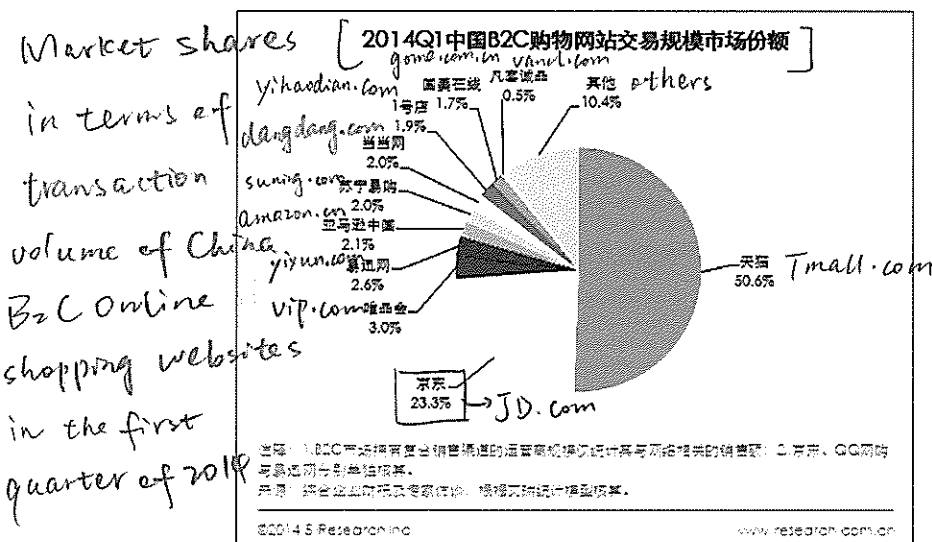 Market shares
in terms of
transaction
volume of China
B2C Online
shopping websites
in the first
quarter of 2014
[2014Q1中国B2C购物网站交易规模市场份额]
gome.com.cn vancl.com
国美在线
1.7%
凡客诚品
0.5%
其他 others
10.4%
yihaodian.com
1号店
1.9%
dangdang.com
当当网
2.0%
suning.com 苏宁易购
2.0%
amazon.cn
亚马逊中国
2.1%
yixun.com 易迅网
2.6%
vip.com 唯品会
3.0%
天猫 Tmall.com
50.6%
京东
23.3% → JD.com
注释：1.B2C市场拥有复合销售渠道的运营商规模仅统计其与网络相关的销售额；2.京东、QQ网购
与易迅网分别单独核算。
来源：综合企业财报及专家访谈，根据艾瑞统计模型核算。
©2014.5 iResearch Inc
www.iresearch.com.cn